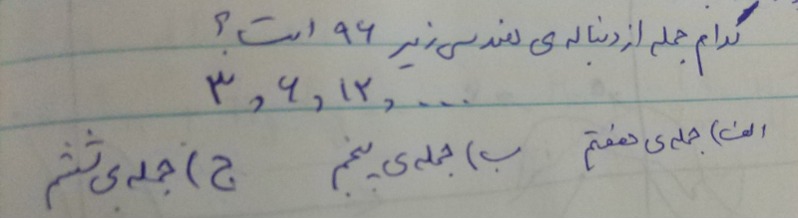 کدام جمله از دنباله ی هندسی زیر ۹۶ است ؟
۳ , ۶ , ۱۲ , ...
الف) جمله ی هفتم ب) جمله ی پنجم ج) جمله ی ششم